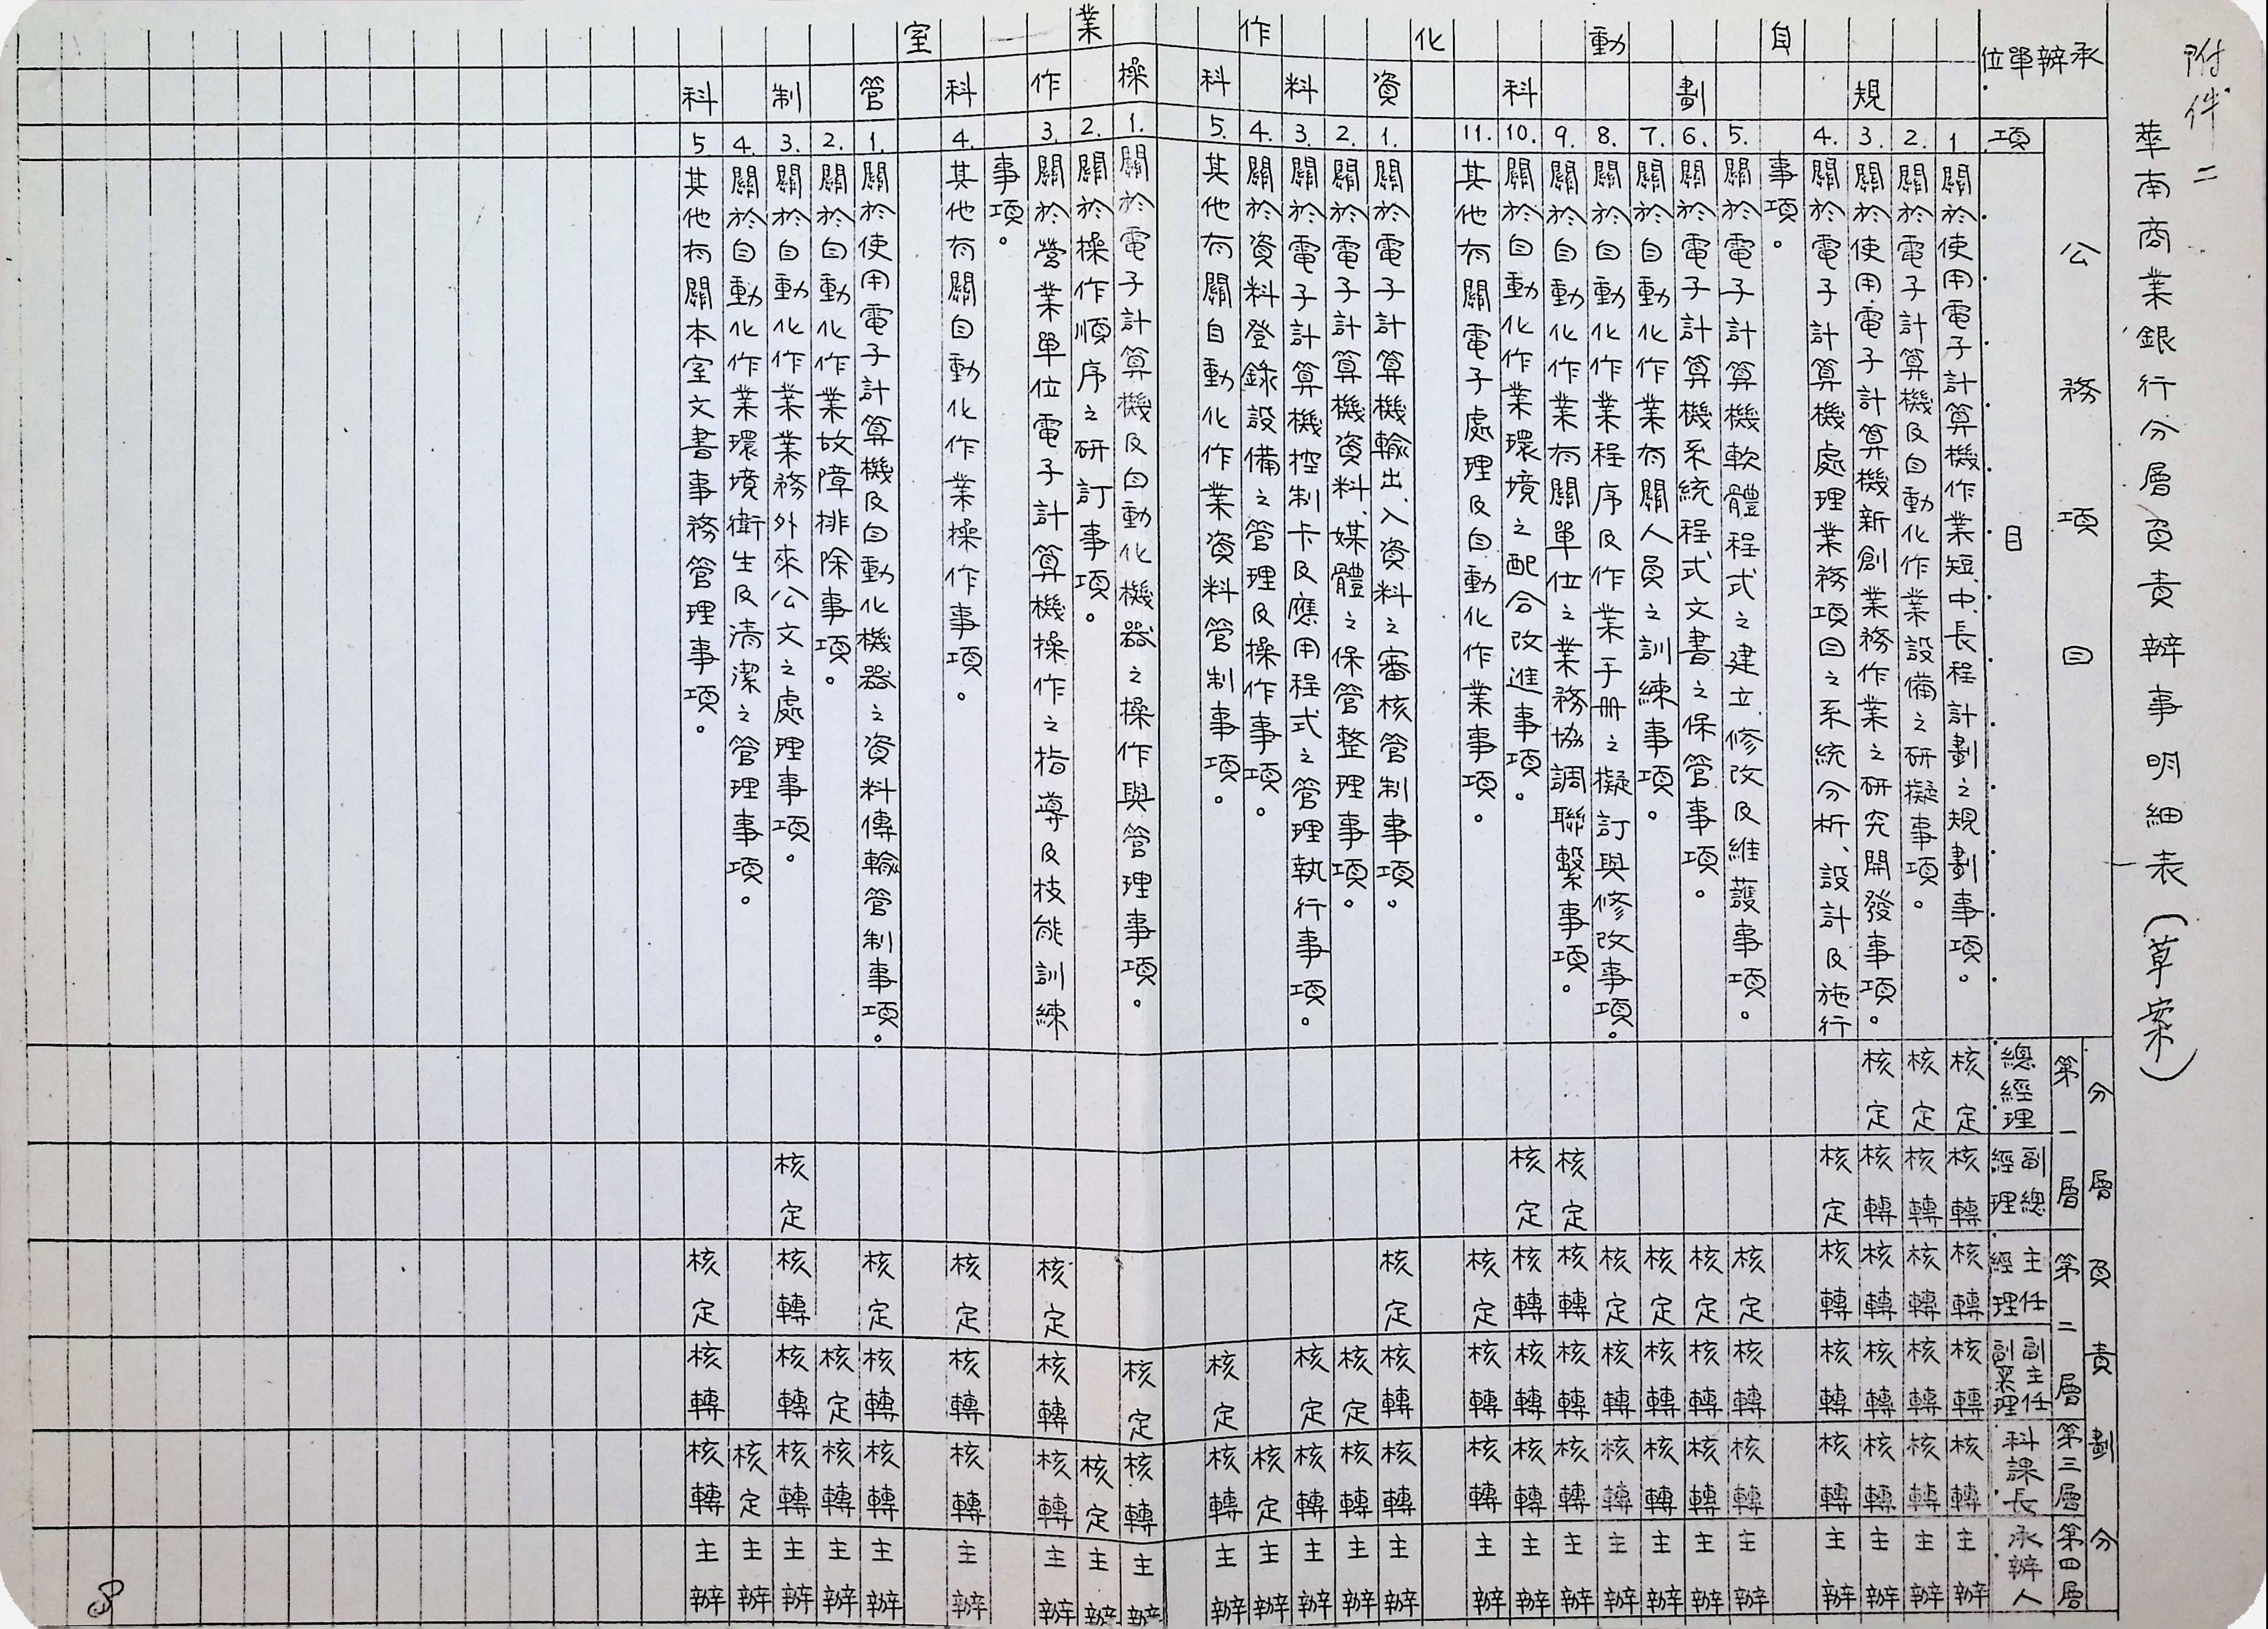 附件二
華南商業銀行分層負責辦事明細表(草案)
承辦單位
公務項目
項目
分層負責劃分
第一層
總經理
副總經理
第二層
主任經理
副主任副經理
第三層
科課長
第四層
承辦人
自動化作業室
規劃科
1.關於使用電子計算機作業短、中、長程計劃之規劃事項。 核定 核轉 核轉 核轉 核轉 主辦
2.關於電子計算機及自動化作業設備之研擬事項。 核定 核轉 核轉 核轉 核轉 主辦
3.關於使用電子計算機新創業務作業之研究開發事項。 核定 核轉 核轉 核轉 核轉 主辦
4.關於電子計算機處理業務項目之系統分析、設計及施行 核定 核轉 核轉 核轉 主辦
事項。
5.關於電子計算機軟體程式之建立、修改及維護事項。 核定 核轉 核轉 主辦
6.關於電子計算機系統程式文書之保管事項。 核定 核轉 核轉 主辦
7.關於自動化作業有關人員之訓練事項。 核定 核轉 核轉 主辦
8.關於自動化作業程序及作業手冊之擬訂與修改事項。 核定 核轉 核轉 主辦
9.關於自動化作業有關單位之業務協調聯繫事項。 核定 核轉 核轉 核轉 主辦
10.關於自動化作業環境之配合改進事項。 核定 核轉 核轉 核轉 主辦
11.其他有關電子處理及自動化作業事項。 核定 核轉 核轉 主辦
資料科
1.關於電子計算機輸出、入資料之審核管制事項。 核定 核轉 核轉 主辦
2.關於電子計算機資料、媒體之保管整理事項。 核定 核轉 主辦
3.關於電子計算機控制卡及應用程式之管理執行事項。 核定 核轉 主辦
4.關於資料登錄設備之管理及操作事項。 核定 主辦
5.其他有關自動化作業資料管制事項。 核定 核轉 主辦
操作科
1.關於電子計算機及自動化機器之操作與管理事項。 核定 核轉 主辦
2.關於操作順序之研訂事項。 核定 主辦
3.關於營業單位電子計算機操作之指導及技能訓練 核定 核轉 核轉 主辦
事項。
4.其他有關自動化作業操作事項。 核定 核轉 核轉 主辦
管制科
1.關於使用電子計算機及自動化機器之資料傳輸管制事項。 核定 核轉 核轉 主辦
2.關於自動化作業故障排除事項。 核定 核轉 主辦
3.關於自動化作業業務外來公文之處理事項。 核定 核轉 核轉 核轉 主辦
4.關於自動化作業環境衛生及清潔之管理事項。 核定 主辦
5.其他有關本室文書事務管理事項。 核定 核轉 核轉 主辦
8